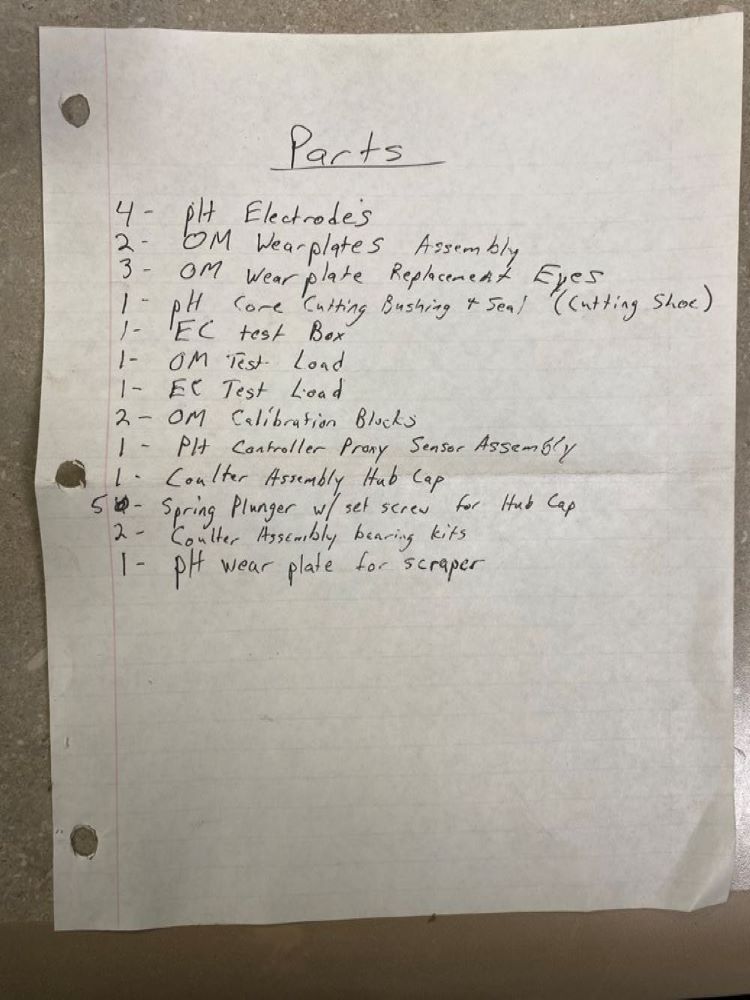 Parts
4 - pH Electrode's
2 - OM Wearplates Assembly
3 - OM Wear plate Replacement Eyes
1 - pH Core Cutting Bushing + Seal (Cutting Shoe)
1 - EC test Box
1 - OM Test Load
1 - EC Test Load
2 - OM Calibration Blocks
1 - PH Controller Proxy Sensor Assembly
1 - Coulter Assembly Hub Cap
5 - Spring Plunger w/ set screw for Hub Cap
2 - Coulter Assembly bearing kits
1 - pH wear plate for scraper